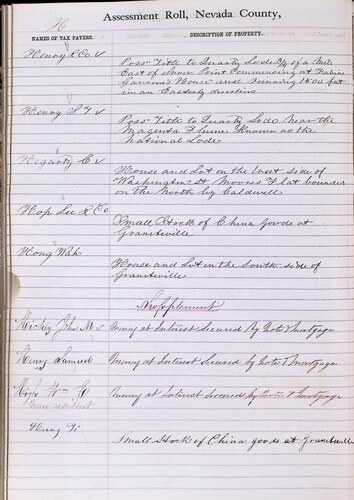 Assessment Roll, Nevada County,
H
NAMES OF TAX PAYERS.
DESCRIPTION OF PROPERTY.
Henry & Co
Poss" Title to Quartz Lode 3/4 of a Mile
East of Snow Point Commencing at
House and Running 1500 feet
in an Easterly direction
Henry S T
Poss" Title to Quartz Lode near the
Magenta Flume Known as the
National Lode
Hegarty C
House and Lot on the West side of
Washington St Moores Flat bounded
on the North by Caldwell
Hop Lee & Co
Small Stock of China Goods at
Graniteville
Hong Wah
House and Lot in the South side of
Graniteville
Supplement
John M
Money at Interest Secured By Note & Mortgage
Samuel
Money at Interest Secured by Note & Mortgage
Wm G
Money at Interest Secured by Note & Mortgage
non resident
Hung
Small Stock of China goods at Graniteville